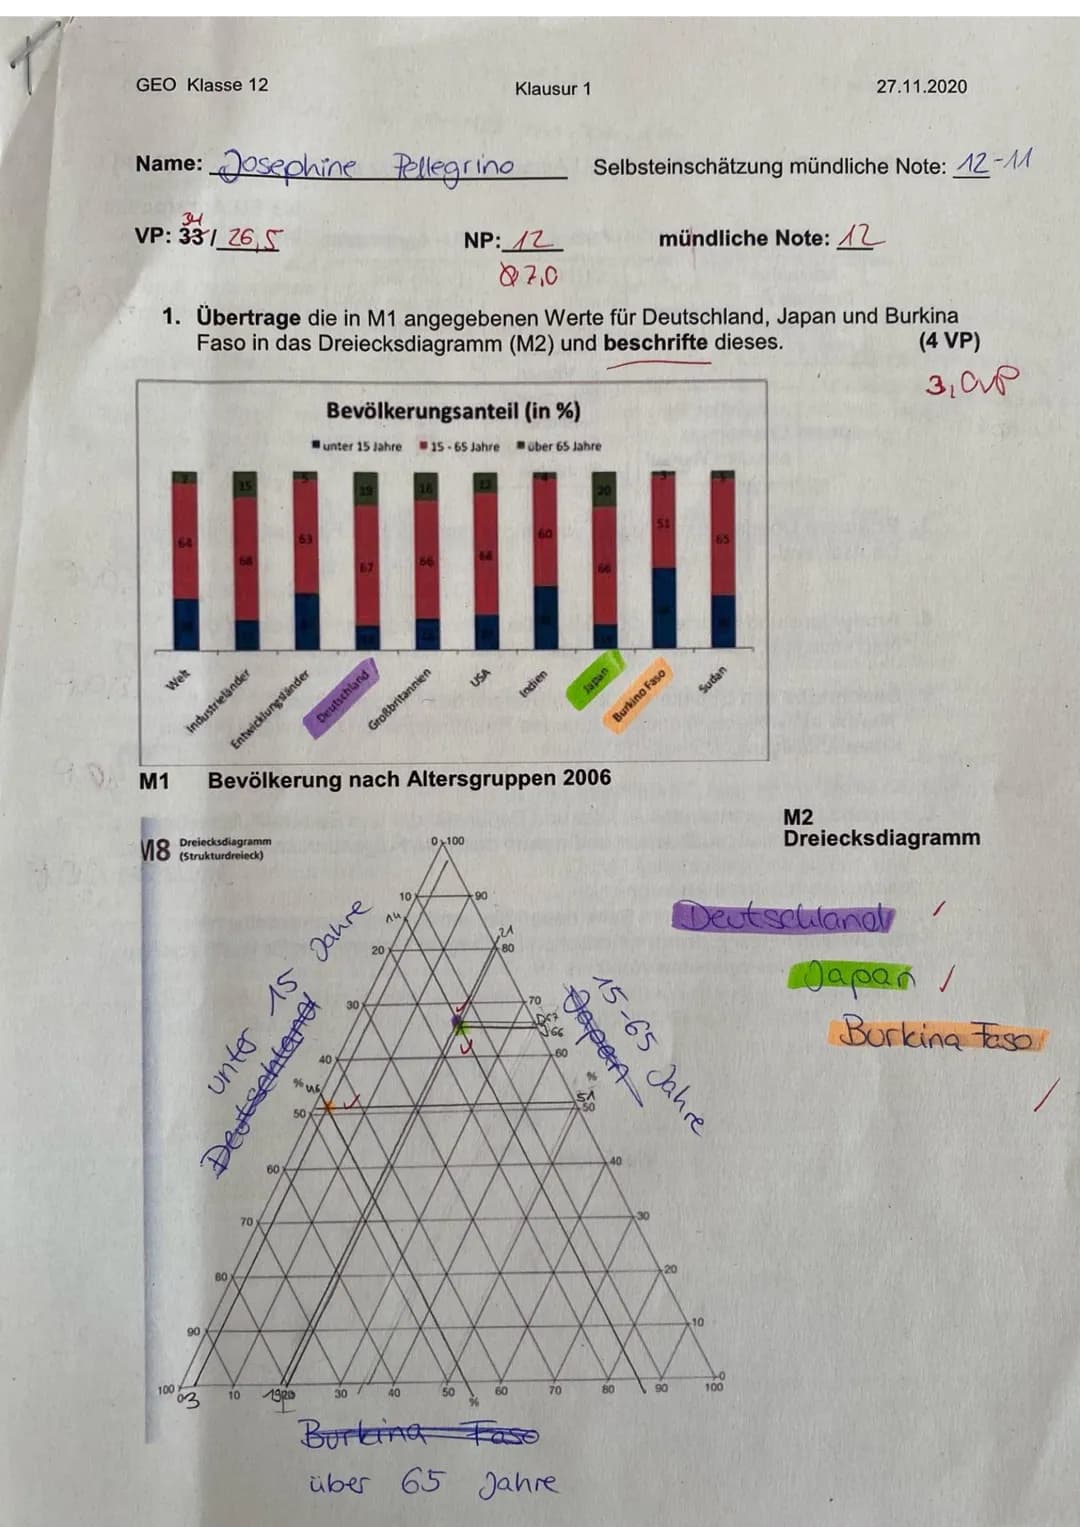 GEO Klasse 12 Klausur 1 27.11.2020
Name: Josephine Pellegrino Selbsteinschätzung mündliche Note: 12-11
34
VP: 33 / 26,5 NP: 12 mündliche Note: 12
Ø 7,0
1. Übertrage die in M1 angegebenen Werte für Deutschland, Japan und Burkina
Faso in das Dreiecksdiagramm (M2) und beschrifte dieses. (4 VP)
3,0VP
Bevölkerungsanteil (in %)
unter 15 Jahre 15 - 65 Jahre über 65 Jahre
7 15 5 19 16 12 4 20 3
64 68 63 67 66 68 60 66 51 65
Welt Industrieländer Entwicklungsländer Deutschland Großbritannien USA Indien Japan Burkino Faso Sudan
M1 Bevölkerung nach Altersgruppen 2006
M2
Dreiecksdiagramm
M8 Dreiecksdiagramm
(Strukturdreieck)
0 100
10 90
14
21
20 80
30 70
D67
J66
40 60
% 46 %
51
50 50
60 40
70 30
80 20
90 10
100 0
03 10 19 20 30 40 50 60 70 80 90 100
%
unter 15 Jahre
Deutschland
15-65 Jahre
Japan
Deutschland
Japan
Burkina Faso
Burkina Faso
über 65 Jahre